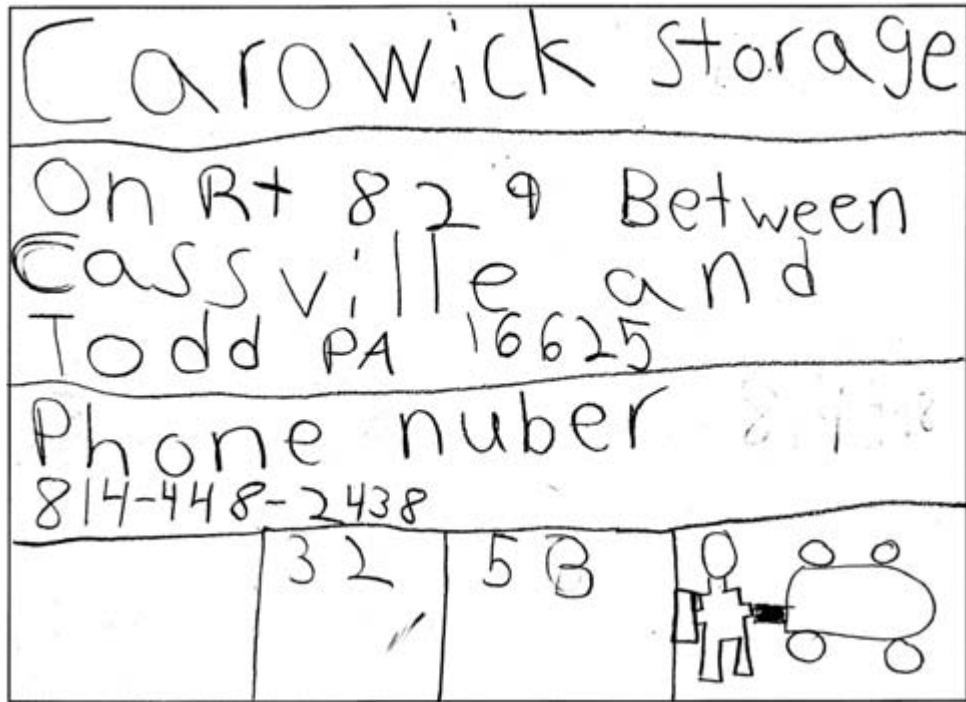 Carowick Storage
On Rt 829 Between
Cassville and
Todd PA 16625
Phone nuber
814-448-2438
32 5B